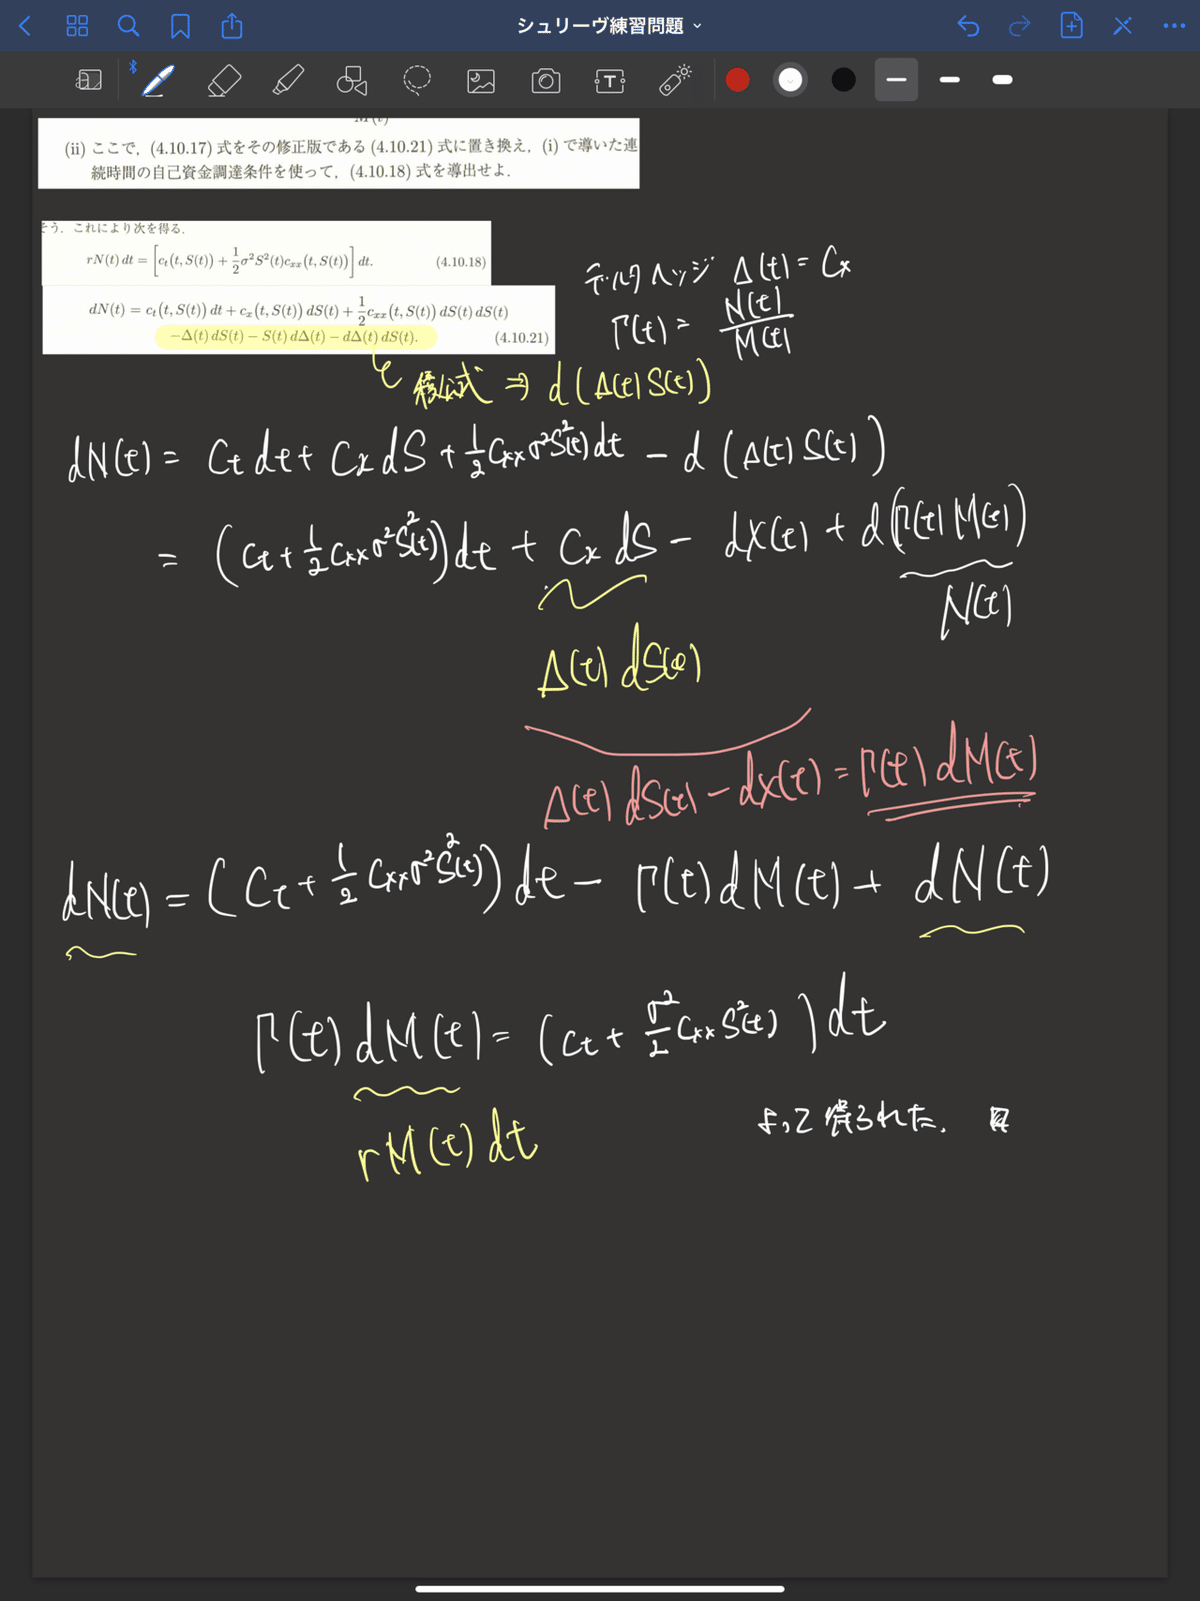 シュリーヴ練習問題
(ii) ここで, (4.10.17) 式をその修正版である (4.10.21) 式に置き換え, (i) で導いた連
続時間の自己資金調達条件を使って, (4.10.18) 式を導出せよ.
そう. これにより次を得る.
rN(t) dt = [c_t(t, S(t)) + 1/2 σ²S²(t)c_xx(t, S(t))] dt. (4.10.18)
dN(t) = c_t(t, S(t)) dt + c_x(t, S(t)) dS(t) + 1/2 c_xx(t, S(t)) dS(t) dS(t)
−Δ(t) dS(t) − S(t) dΔ(t) − dΔ(t) dS(t). (4.10.21)
デルタヘッジ Δ(t) = Cx
Γ(t) = N(t)/M(t)
積公式 ⇒ d(Δ(t)S(t))
dN(t) = Ct dt + Cx dS + 1/2 Cxx σ²S²(t) dt − d(Δ(t)S(t))
= (Ct + 1/2 Cxx σ²S²(t)) dt + Cx dS − dX(t) + d(Γ(t)M(t))
N(t)
Δ(t) dS(t)
Δ(t) dS(t) − dX(t) = Γ(t) dM(t)
dN(t) = (Ct + 1/2 Cxx σ²S²(t)) dt − Γ(t) dM(t) + dN(t)
Γ(t) dM(t) = (Ct + σ²/2 Cxx S²(t)) dt
rM(t) dt
よって得られた.